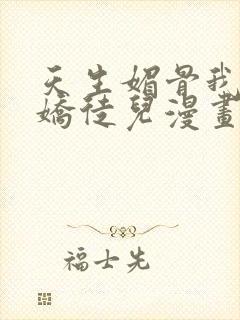 天生媚骨我
嬌徒兒漫畫
福士先